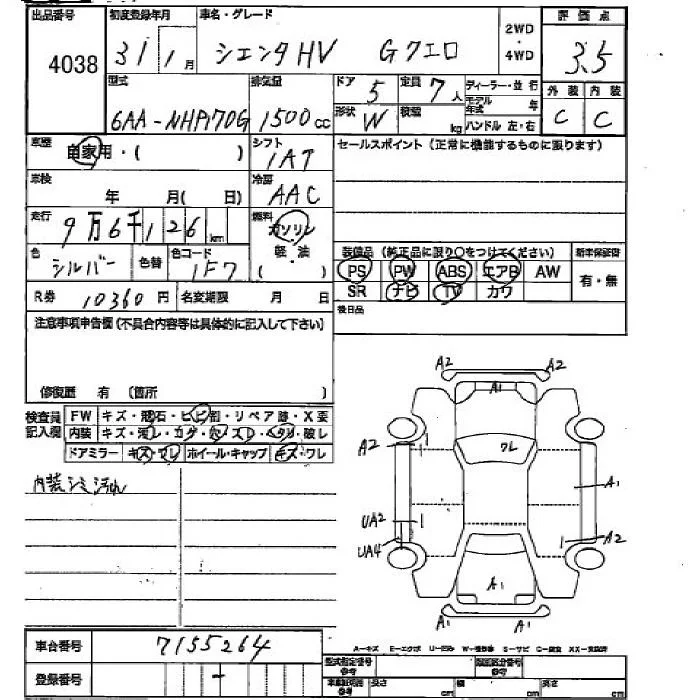 出品番号 初度登録年月 車名・グレード 評価点
4038 31 1月 シエンタHV Gクエロ 2WD・4WD 3.5
型式 排気量 ドア 5 定員 7人 ディーラー・並行 外装 内装
6AA-NHP170G 1500cc 形状 W 積載 kg モデル年式 年 C C
ハンドル 左・右
車歴 自家用・( ) シフト 1AT セールスポイント (正常に機能するものに限ります)
車検 年 月( 日) 冷房 AAC
走行 9万6千126km 燃料 ガソリン 軽・油 ( )
色 シルバー 色替 色コード 1F7
装備品 (純正品に限り○をつけてください) 新車保証書
PS PW ABS エアB AW 有・無
SR ナビ TV カワ
R券 10360円 名変期限 月 日 後日品
注意事項申告欄 (不具合内容等は具体的に記入して下さい)
修復歴 有 (箇所
検査員記入欄 FW キズ・飛石・ヒビ割・リペア跡・X要
内装 キズ・汚レ・カゲ・穴・スレ・ヘタリ・破レ
ドアミラー キズ・ワレ ホイール・キャップ キズ・ワレ
内装シミ汚れ
A2 A2
A2 1 ワレ
A1
UA2 1 1 A2
UA4
A1
A1 A1
A-キズ E-エクボ U-凹み W-補修跡 S-サビ C-腐食 XX-交換済
車台番号 7155264
登録番号 -
型式指定番号 参考 類別区分番号 参考
車輌範囲 参考 長さ cm 幅 cm 高さ cm